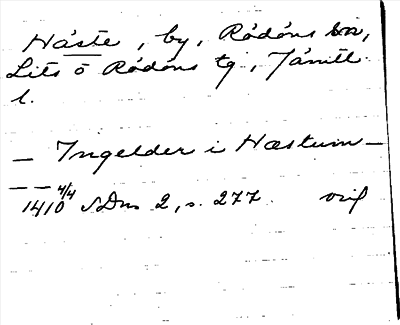 Håste, by, Rödöns sn,
Lits o Rödöns tg, Jämtl.
l.
— Ingelder i Hæstum —
— — 4/4
1410 SDns 2, s. 277 orig